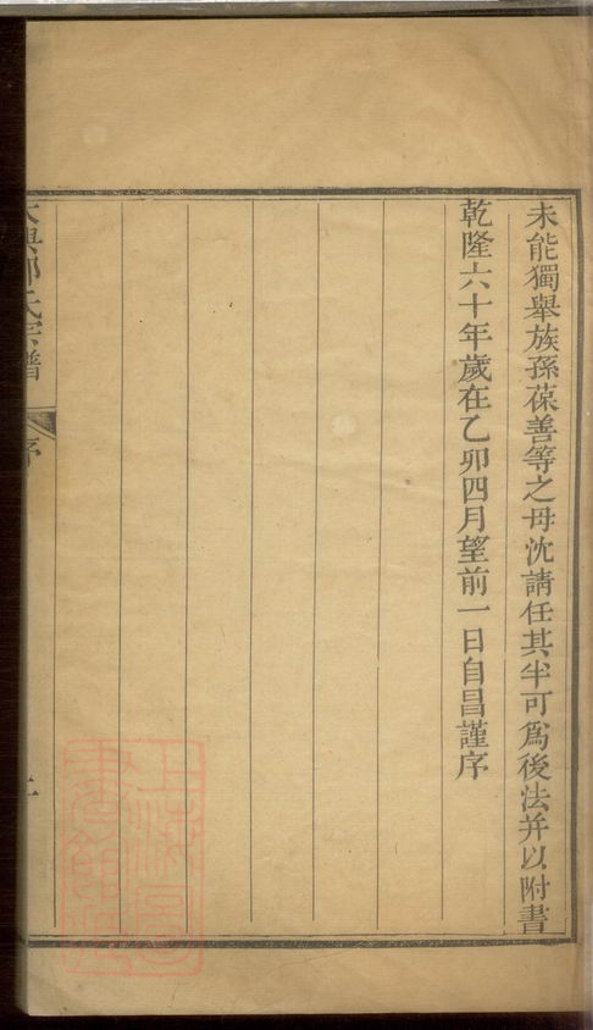 未能獨舉族孫葆善等之母沈請任其半可爲後法并以附書
乾隆六十年歲在乙卯四月望前一日自昌謹序
氏宗譜
序
上海圖
書館藏